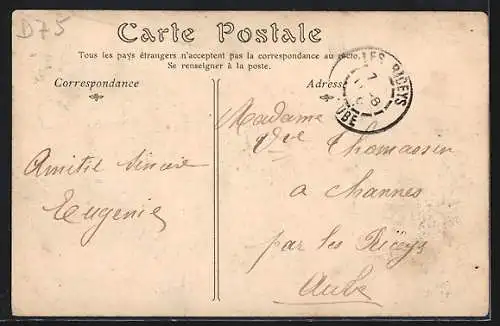 D75
Carte Postale
Tous les pays étrangers n'acceptent pas la correspondance au recto.
Se renseigner à la poste.
Correspondance
Adresse
LES RICEYS
AUBE
Amitié sincère
Eugenie
Madame
Vve Thomassin
a Channes
par les Riceys
Aube